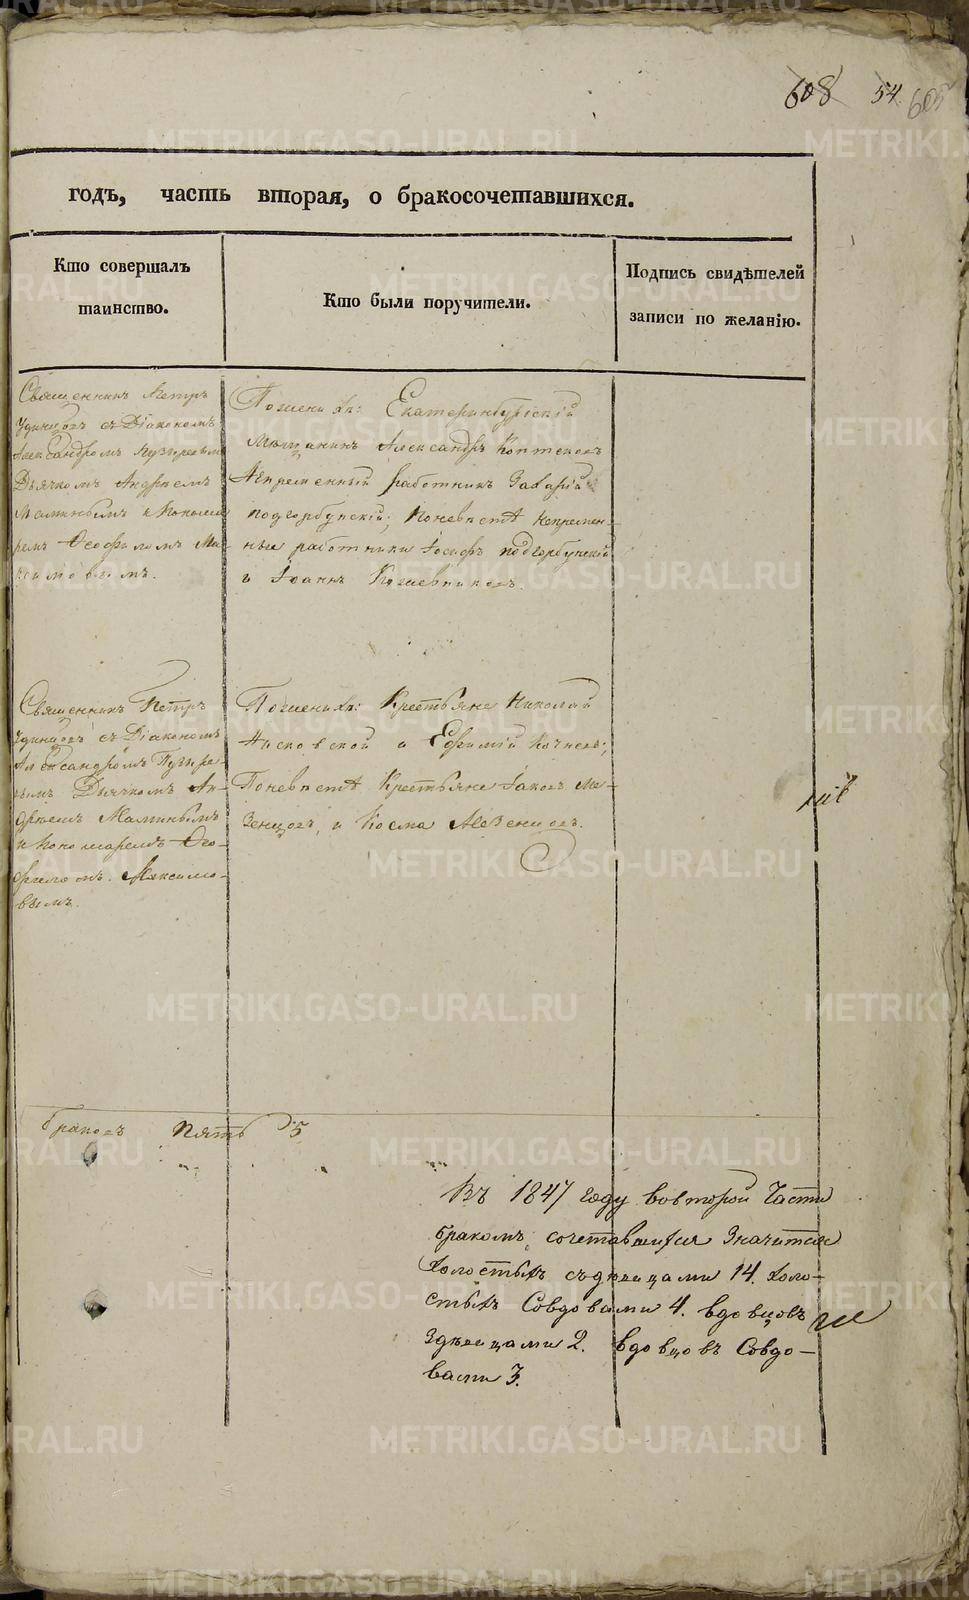 608 54. 605
годъ, часть вторая, о бракосочетавшихся.
Кто совершалъ
таинство.
Кто были поручители.
Подпись свидѣтелей
записи по желанію.
Священникъ Петръ
Удинцовъ съ Діакономъ
Александромъ
Дьячкомъ Андреемъ
Малиннымъ и Понома
ремъ Феофиломъ Ма-
ксимовымъ.
Пожениха: Екатеринбургскій
Мѣщанинъ Александръ Коптеловъ
Непременный работникъ Захарій
подгорбунскій; Поневестѣ непремен-
ные работники Іосифъ подгорбунскій
и Іоаннъ Кожевниковъ.
Священникъ Петръ
Удинцовъ съ Діакономъ
Александромъ Пузыре
вымъ Дьячкомъ Ан-
дреемъ Малиннымъ
и Пономаремъ Фео-
филомъ Максимо-
вымъ.
Пожениха: Крестьяне Николай
и Ефимій
Поневестѣ Крестьяне Іаковъ Ме-
зенцовъ, и Косма Мезенцовъ.
браковъ пять 5
Въ 1847 году вовторой Части
бракомъ сочетавшихся Значится
Холостыхъ съдѣвицами 14. холо-
стыхъ Совдовами 4. вдовцовъ
Здѣвицами 2. вдовцовъ Совдо-
вами 3.
METRIKI.GASO-URAL.RU